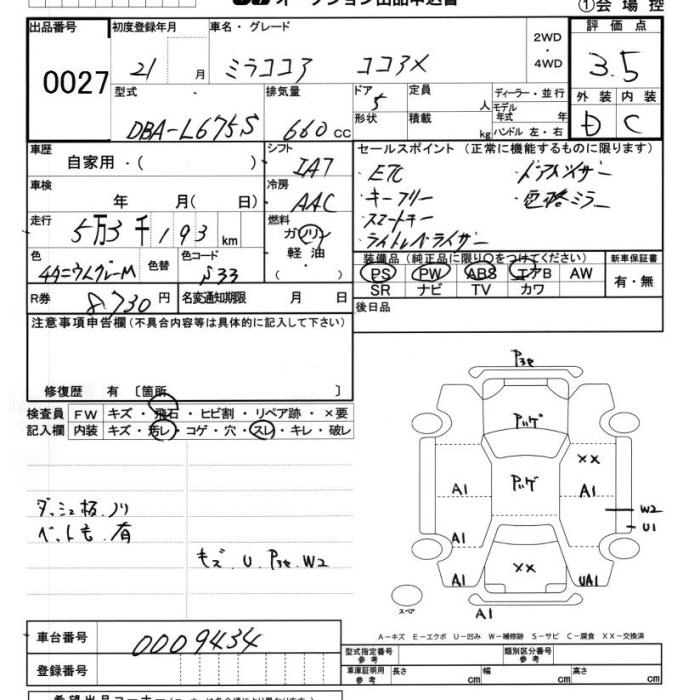 オークション出品申込書
①会場控
出品番号
0027
初度登録年月
21 月
車名・グレード
ミラココア ココアX
2WD
・
4WD
評価点
3.5
外装 内装
D C
型式
DBA-L675S
排気量
660 cc
ドア
5
形状
定員
人
積載
kg
ディーラー・並行
モデル
年式 年
ハンドル 左・右
車歴
自家用・( )
シフト
IAT
車検
年 月( 日)
冷房
AAC
走行
5万3千193 km
燃料
ガソリン
軽油
( )
色
色替
色コード
S33
R券
8,730円
名変通知期限 月 日
セールスポイント (正常に機能するものに限ります)
・ETC
・キーフリー
・スマートキー
・ライトレベライザー
・ドアバイザー
・電格ミラー
装備品 (純正品に限り○をつけてください)
PS PW ABS エアB AW
SR ナビ TV カワ
新車保証書
有・無
後日品
注意事項申告欄 (不具合内容等は具体的に記入して下さい)
修復歴 有 〔箇所 〕
検査員
記入欄
FW キズ・飛石・ヒビ割・リペア跡・×要
内装 キズ・汚レ・コゲ・穴・スレ・キレ・破レ
ダッシュ板ノリ
ペットも 有
キズ. U. P3セ W2
P3セ
Pッゲ
××
Pッゲ
A1
A1
W2
U1
A1
××
A1
UA1
スペア
A1
A-キズ E-エクボ U-凹み W-補修跡 S-サビ C-腐食 XX-交換済
車台番号
0009434
登録番号
型式指定番号
参考
類別区分番号
参考
車庫証明用
参考
長さ cm
幅 cm
高さ cm